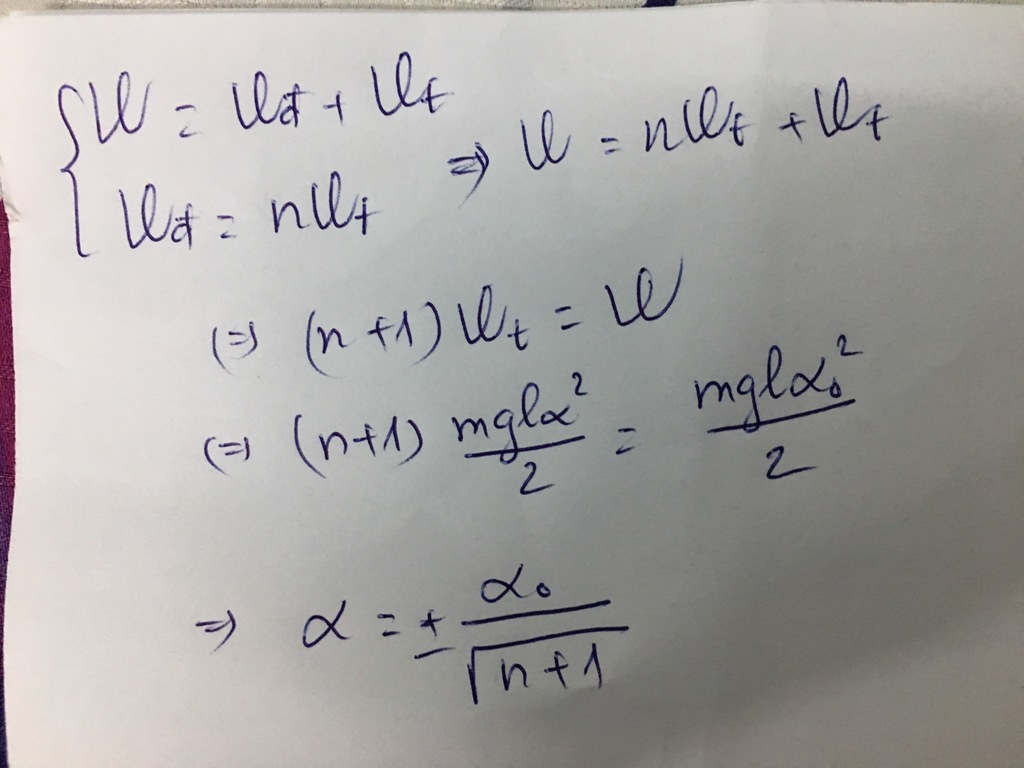 { W = Wđ + Wt
Wđ = nWt => W = nWt + Wt
(=) (n+1) Wt = W
(=) (n+1) mglα²/2 = mglα₀²/2
=> α = ± α₀/√(n+1)